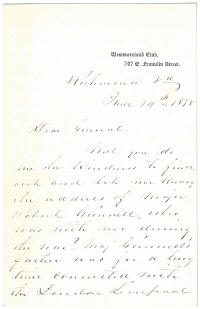 Westmoreland Club,
707 E. Franklin Street.
Richmond Va
June 14th 1898
Dear General
Will you do
me the kindness to find
out and let me know
the address of Major
Robert Gunnell, who
was with me during
the war? Maj Gunnell's
father was for a long
time connected with
the London Liverpool